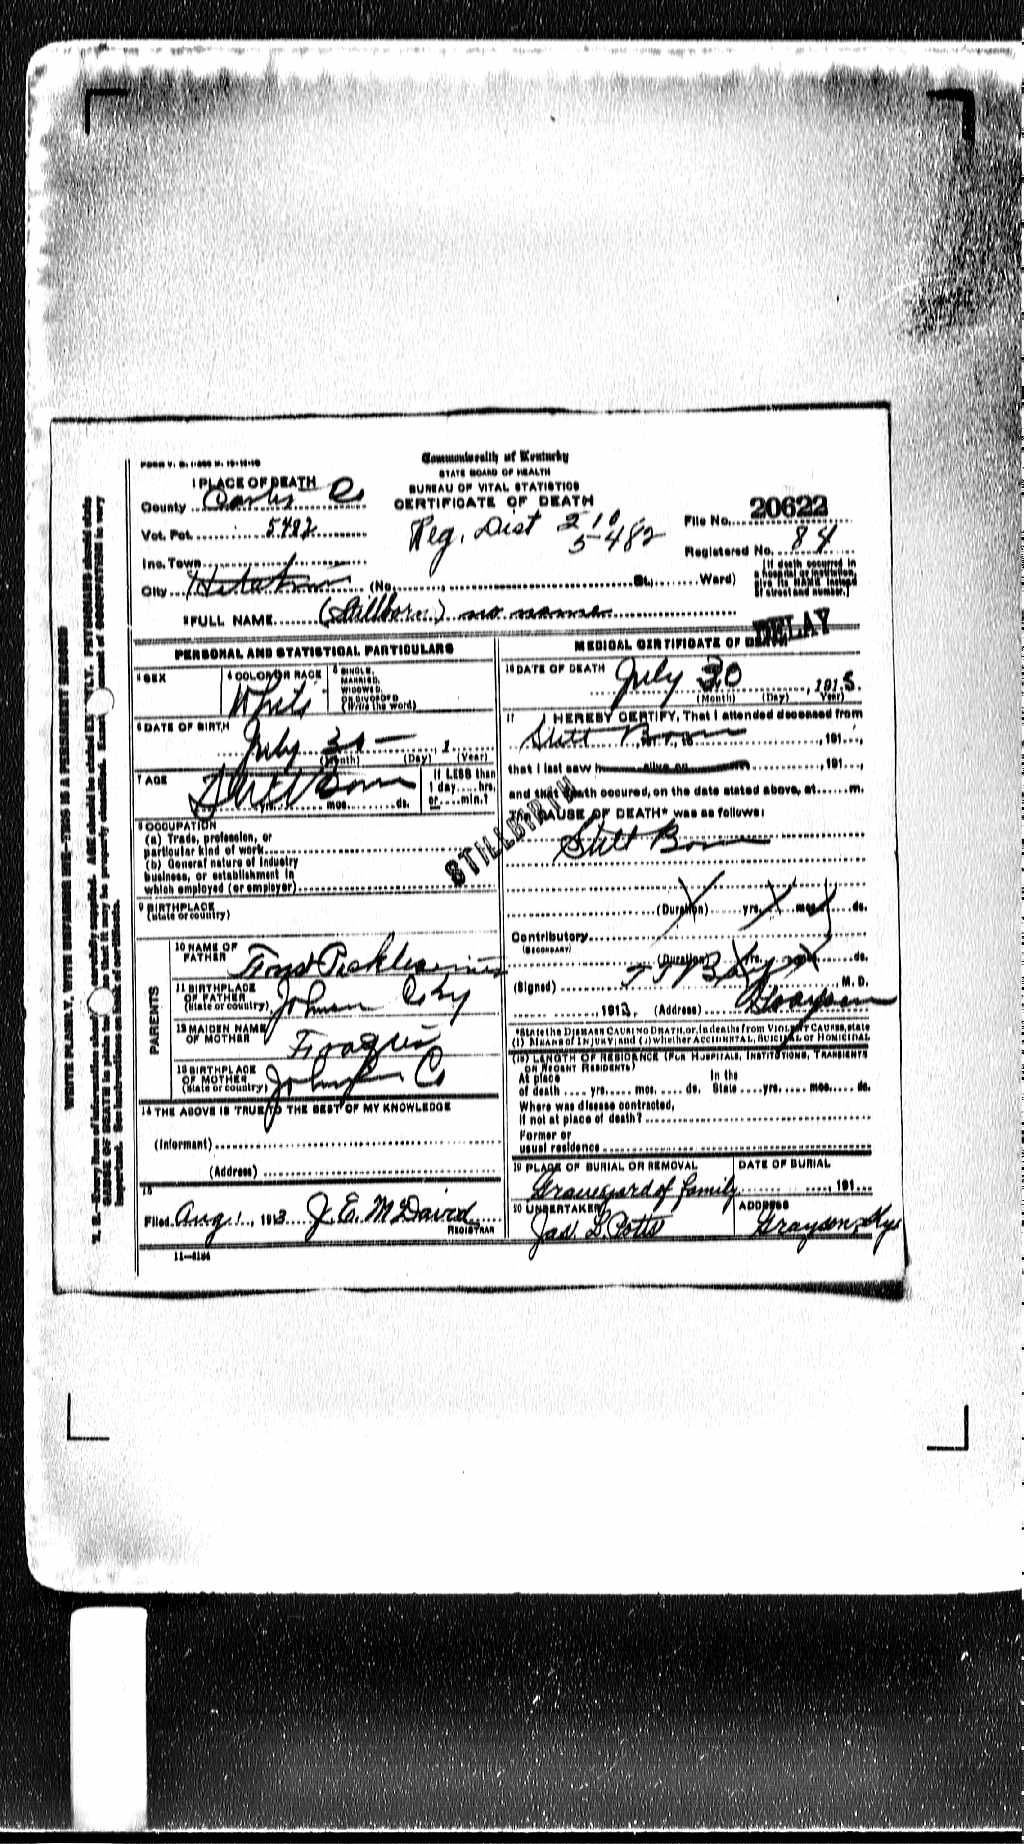 Commonwealth of Kentucky
STATE BOARD OF HEALTH
BUREAU OF VITAL STATISTICS
CERTIFICATE OF DEATH
1 PLACE OF DEATH
County Carter Co
Vot. Pct. 5482
Inc. Town
City (No. St. Ward)
Reg. Dist 210
5482
File No. 20622
Registered No. 84
[If death occurred in
a hospital or institution
give its NAME instead
of street and number.]
2 FULL NAME (Stillborn) no name
DELAY
PERSONAL AND STATISTICAL PARTICULARS
3 SEX
4 COLOR OR RACE
White
5 SINGLE,
MARRIED,
WIDOWED
OR DIVORCED
(Write the word)
6 DATE OF BIRTH
July 30 1
(Month) (Day) (Year)
7 AGE
Still Born
mos. ds.
If LESS than
1 day hrs.
or min.?
8 OCCUPATION
(a) Trade, profession, or
particular kind of work
(b) General nature of industry
business, or establishment in
which employed (or employer)
9 BIRTHPLACE
(state or country)
STILLBIRTH
PARENTS
10 NAME OF
FATHER
11 BIRTHPLACE
OF FATHER
(State or country)
12 MAIDEN NAME
OF MOTHER
13 BIRTHPLACE
OF MOTHER
(State or country) Johnson Co
14 THE ABOVE IS TRUE TO THE BEST OF MY KNOWLEDGE
(Informant)
(Address)
15
Filed Aug 1, 1913 J. E. McDavid
REGISTRAR
11-3184
MEDICAL CERTIFICATE OF DEATH
16 DATE OF DEATH
July 30, 1913
(Month) (Day) Year)
17 I HEREBY CERTIFY, That I attended deceased from
Still Born, 191
that I last saw h alive on, 191
and that death occured, on the date stated above, at m.
The CAUSE OF DEATH* was as follows:
Still Born
(Duration) yrs. mos. ds.
Contributory
(SECONDARY)
(Duration) yrs. mos. ds.
(Signed) M. D.
, 191 (Address) Grayson
*State the DISEASE CAUSING DEATH, or, in deaths from VIOLENT CAUSES, state
(1) MEANS OF INJURY; and (2) whether ACCIDENTAL, SUICIDAL or HOMICIDAL
(18) LENGTH OF RESIDENCE (FOR HOSPITALS, INSTITUTIONS, TRANSIENTS
OR RECENT RESIDENTS)
At place In the
of death yrs. mos. ds. State yrs. mos. ds.
Where was disease contracted,
if not at place of death?
Former or
usual residence
19 PLACE OF BURIAL OR REMOVAL DATE OF BURIAL
Graveyard of family, 191
20 UNDERTAKER ADDRESS
Jas. L. Potts Grayson, Ky
WRITE PLAINLY, WITH UNFADING INK—THIS IS A PERMANENT RECORD